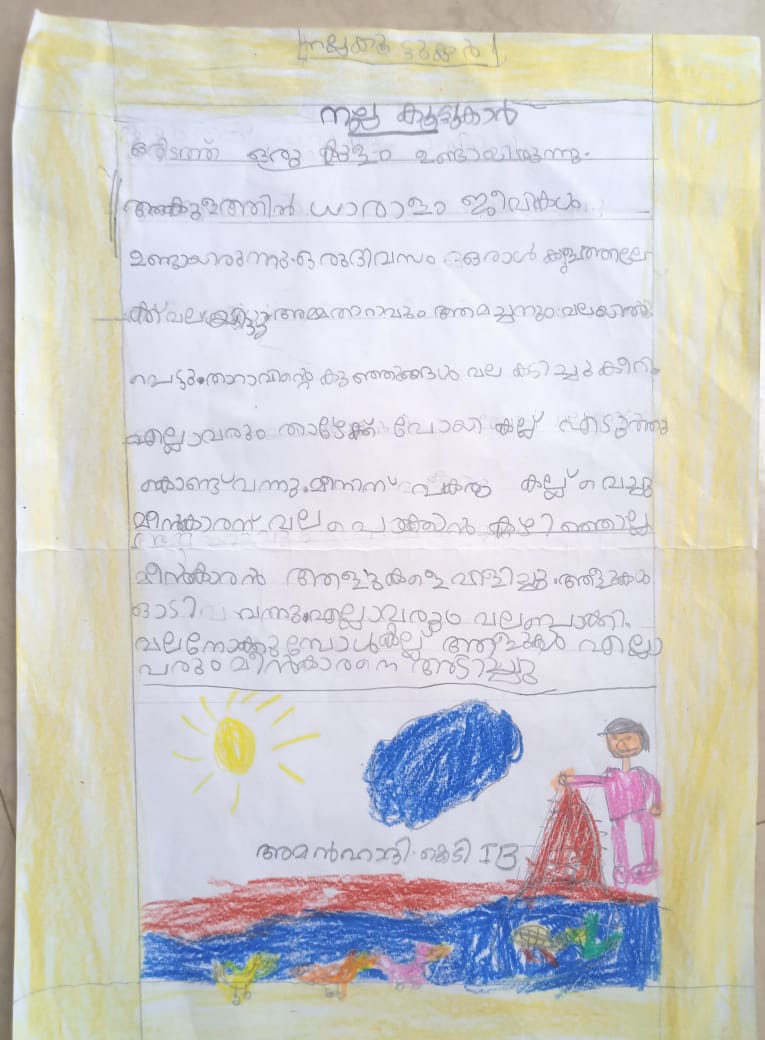 നല്ലകൂട്ടുകാർ
നല്ല കൂട്ടുകാൻ
ഒരിടത്ത് ഒരു കുളം ഉണ്ടായിരുന്നു.
അകുളത്തിൽ ധാരാളം ജീവികൾ
ഉണ്ടായരുന്നു.ഒരുദിവസം ഒരാൾ കുളത്തിലേ
ക്ക് വലയിട്ടു അമ്മതാറാവും ആമച്ചനും വലയിൽ
പെട്ടു.താറാവിന്റെ കുഞ്ഞുങ്ങൾ വല കടിച്ചു കീറി.
എല്ലാവരും താഴേക്ക് പോയി കല്ല് എടുത്തു
കൊണ്ട് വന്നു.മീനിന് പകരം കല്ല് വെച്ചു
മീൻകാരന് വല പൊക്കാൻ കഴിഞ്ഞില്ല
മീൻകാരൻ ആളുകളെ വിളിച്ചു.ആളുകൾ
ഓടി വന്നു.എല്ലാവരും വലപൊക്കി.
വലനോക്കുമ്പോൾ കല്ല് ആളുകൾ എല്ലാ
വരും മീൻകാരനെ അടിച്ചു
അമൻഹാദി.കെടി IB